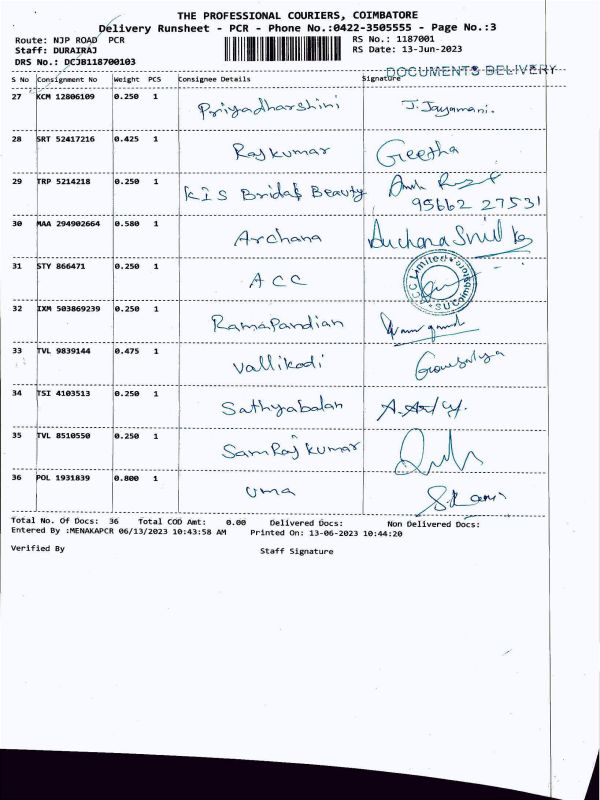 THE PROFESSIONAL COURIERS, COIMBATORE
Delivery Runsheet - PCR - Phone No.:0422-3505555 - Page No.:3
Route: NJP ROAD PCR RS No.: 1187001
Staff: DURAIRAJ RS Date: 13-Jun-2023
DRS No.: DCJB118700103
DOCUMENTS DELIVERY
S No Consignment No Weight PCS Consignee Details Signature
27 KCM 12806109 0.250 1 Priyadharshini J. Jayamani.
28 SRT 52417216 0.425 1 Rajkumar Geetha
29 TRP 5214218 0.250 1 KIS Bridal Beauty
95662 27531
30 MAA 294902664 0.580 1 Archana Archana
31 STY 866471 0.250 1 ACC
ACC Limited
32 IXM 503869239 0.250 1 RamaPandian
33 TVL 9839144 0.475 1 Vallikodi Gowsalya
34 TSI 4103513 0.250 1 Sathyabalan
35 TVL 8510550 0.250 1 SamRajkumar
36 POL 1931839 0.800 1 Uma
Total No. Of Docs: 36 Total COD Amt: 0.00 Delivered Docs: Non Delivered Docs:
Entered By :MENAKAPCR 06/13/2023 10:43:58 AM Printed On: 13-06-2023 10:44:20
Verified By Staff Signature